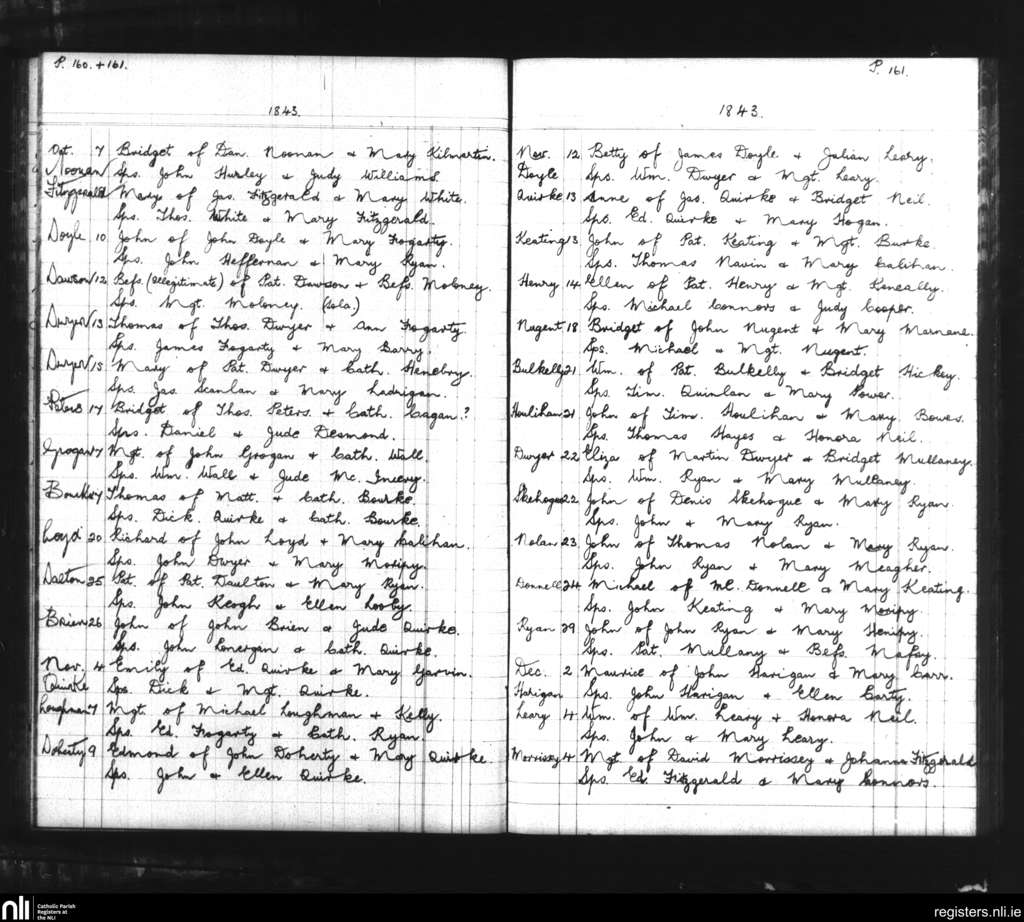 P. 160. + 161.
1843.
Oct. 7 Bridget of Dan. Noonan & Mary Kilmartin.
Noonan Sps. John Hurley & Judy Williams.
Fitzgerald Mary of Jas. Fitzgerald & Mary White.
Sps. Thos. White & Mary Fitzgerald.
Doyle 10 John of John Doyle & Mary Fogarty.
Sps. John Heffernan & Mary Ryan.
Dawson 12 Bess (illegitimate) of Pat. Dawson & Bess. Moloney.
Sps. Mgt. Moloney. (sola.)
Dwyer 13 Thomas of Thos. Dwyer & Ann Fogarty
Sps. James Fogarty & Mary Barry
Dwyer 15 Mary of Pat. Dwyer & Cath. Henebry.
Sps. Jas. Scanlan & Mary Ladrigan.
Peters 17 Bridget of Thos. Peters. & Cath. Eagan.?
Sps. Daniel & Jude Desmond.
Grogan 17 Mgt. of John Grogan & Cath. Wall.
Sps. Wm. Wall & Jude Mc.
Bourke 17 Thomas of Matt. & Cath. Bourke.
Sps. Dick. Quirke & Cath. Bourke.
Loyd 20 Richard of John Loyd & Mary Calihan.
Sps. John Dwyer & Mary
Dalton 25 Pat. of Pat. Daulton & Mary Ryan.
Sps. John Keogh & Ellen Looby.
Brien 26 John of John Brien & Jude Quirke.
Sps. John Lonergan & Cath. Quirke.
Nov. 4 Emily of Ed. Quirke & Mary Garvin.
Quirke Sps. Dick & Mgt. Quirke.
Loughman 7 Mgt. of Michael Loughman & Kelly.
Sps. Ed. Fogarty & Cath. Ryan.
Doherty 9 Edmond of John Doherty & Mary Quirke.
Sps. John & Ellen Quirke.
P. 161.
1843.
Nov. 12 Betty of James Doyle & Julian Leary.
Doyle Sps. Wm. Dwyer & Mgt. Leary.
Quirke 13 Anne of Jas. Quirke & Bridget Neil.
Sps. Ed. Quirke & Mary Hogan.
Keating 13 John of Pat. Keating & Mgt. Burke
Sps. Thomas Navin & Mary Calihan.
Henry 14 Ellen of Pat. Henry & Mgt. Keneally.
Sps. Michael Connors & Judy Cooper.
Nugent 18 Bridget of John Nugent & Mary Marnane.
Sps. Michael & Mgt. Nugent.
Bulkelly 21 Wm. of Pat. Bulkelly & Bridget Hickey.
Sps. Tim. Quinlan & Mary Power.
Houlihan 21 John of Tim. Houlihan & Mary Bowes.
Sps. Thomas Hayes & Honora Neil.
Dwyer 22 Eliza of Martin Dwyer & Bridget Mullaney.
Sps. Wm. Ryan & Mary Mullaney.
Skehogue 22 John of Denis Skehogue & Mary Ryan.
Sps. John & Mary Ryan.
Nolan 23 John of Thomas Nolan & Mary Ryan.
Sps. John Ryan & Mary Meagher.
Donnell 24 Michael of Ml. Donnell & Mary Keating.
Sps. John Keating & Mary
Ryan 29 John of John Ryan & Mary
Sps. Pat. Mullany & Bess.
Dec. 2 Maurice of John Harigan & Mary Carr.
Harigan Sps. John Harigan & Ellen Carty.
Leary 4 Wm. of Wm. Leary & Honora Neil.
Sps. John & Mary Leary.
Morrissey 4 Mgt. of David Morrissey & Johanna Fitzgerald
Sps. Ed. Fitzgerald & Mary Connors.
nli Catholic Parish
Registers at
the NLI
registers.nli.ie